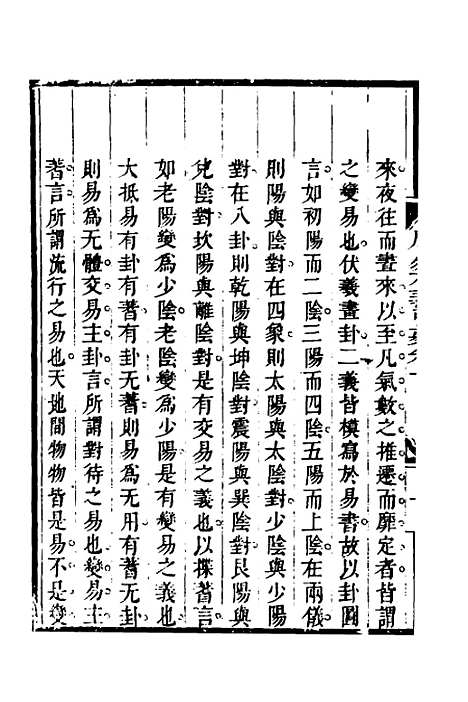 來夜往而晝來以至凡氣數之推遷而靡定者皆謂
之變易也伏羲畫卦二義皆模寫於易書故以卦圖
言如初陽而二陰三陽而四陰五陽而上陰在兩儀
則陽與陰對在四象則太陽與太陰對少陰與少陽
對在八卦則乾陽與坤陰對震陽與巽陰對艮陽與
兌陰對坎陽與離陰對是有交易之義也以揲蓍言
如老陽變爲少陰老陰變爲少陽是有變易之義也
大抵易有卦有蓍有卦无蓍則易爲无用有蓍无卦
則易爲无體交易主卦言所謂對待之易也變易主
蓍言所謂流行之易也天地間物物皆是易不是變